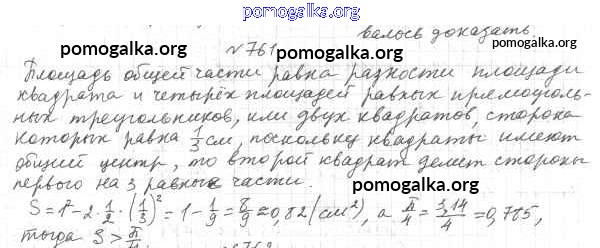 pomogalka.org
валось доказать.
pomogalka.org
№761
pomogalka.org
Площадь общей части равна разности площади
квадрата и четырёх площадей равных прямоуголь-
ных треугольников, или двух квадратов, сторона
которых равна 1/3 см, поскольку квадраты имеют
общий центр, то второй квадрат делит стороны
первого на 3 равные части.
pomogalka.org
S = 1² - 2 · 1/2 · (1/3)² = 1 - 1/9 = 8/9 ≈ 0,82 (см²), а π/4 = 3,14/4 = 0,785,
тогда S > π/4
pomogalka.org
№762